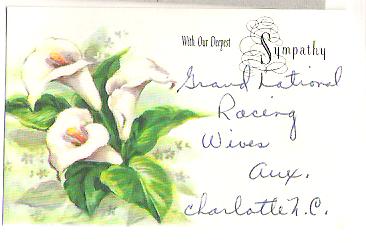 With Our Deepest Sympathy
Grand National
Racing
Wives
Aux.
Charlotte N.C.